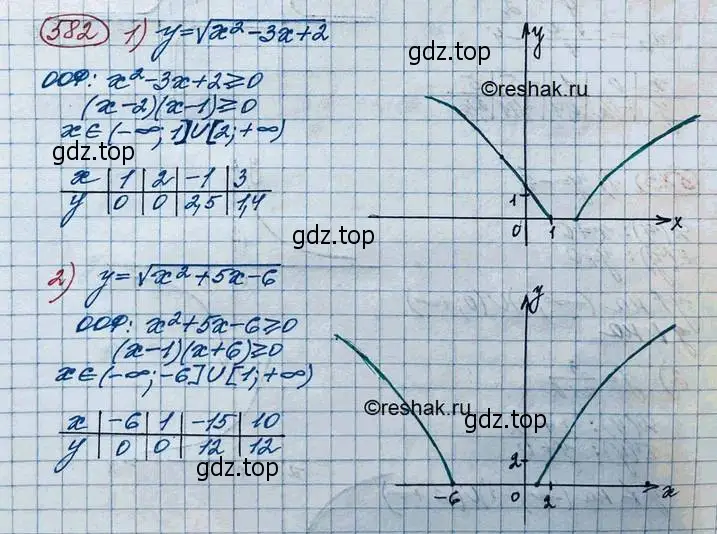 582 1) y=√x²-3x+2
ООФ: x²-3x+2≥0
(x-2)(x-1)≥0
x∈(-∞; 1]∪[2; +∞)
x | 1 | 2 | -1 | 3
y | 0 | 0 | 2,5 | 1,4
gdz.top
gdz.top
©reshak.ru
gdz.top
y
1
0 1 x
2) y=√x²+5x-6
ООФ: x²+5x-6≥0
(x-1)(x+6)≥0
x∈(-∞; -6]∪[1; +∞)
x | -6 | 1 | -15 | 10
y | 0 | 0 | 12 | 12
gdz.top
©reshak.ru
gdz.top
y
2
-6 0 2 x